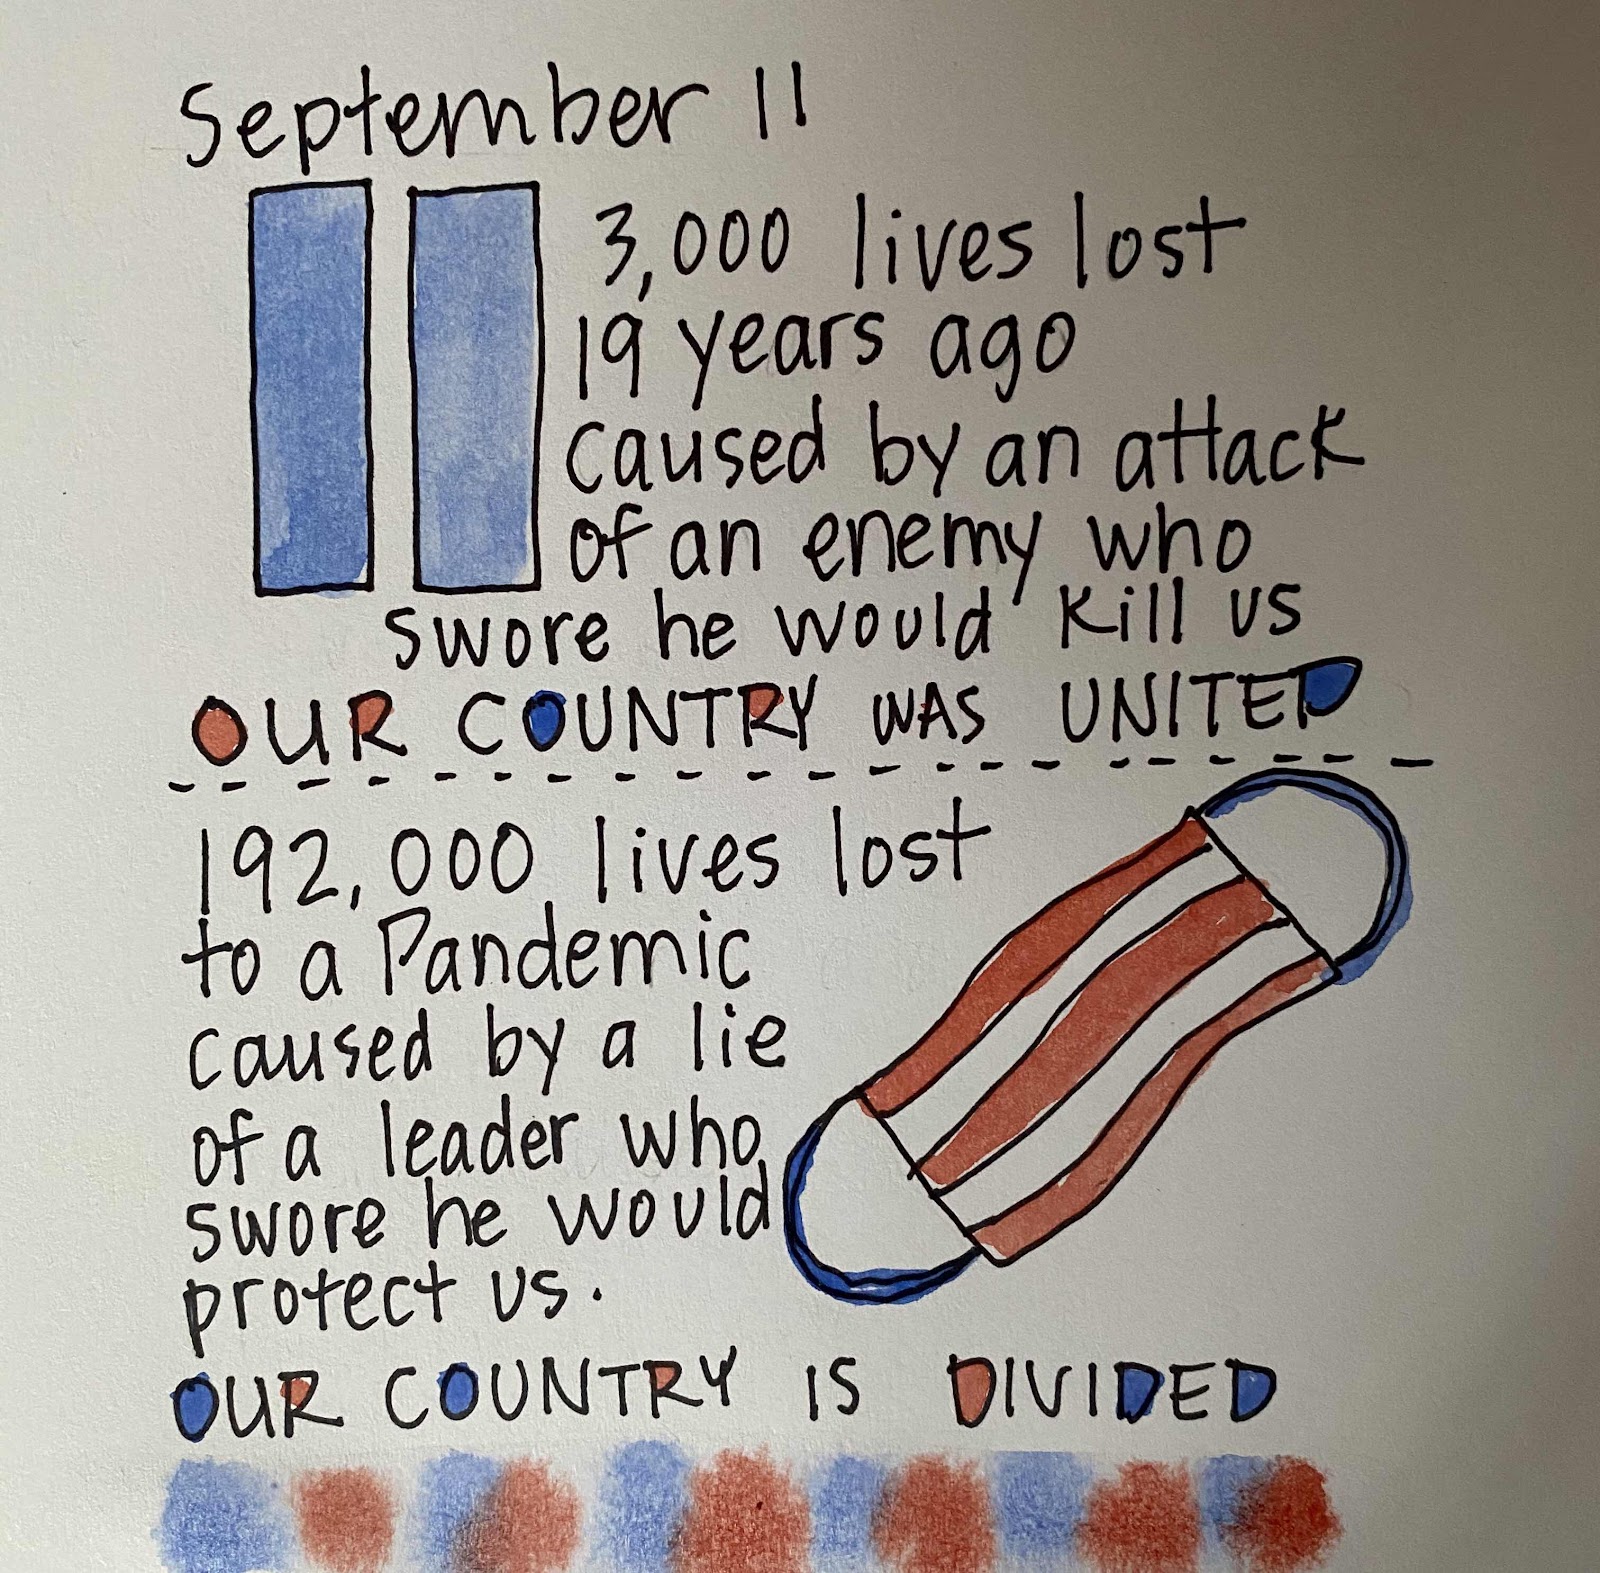 September 11
3,000 lives lost
19 years ago
caused by an attack
of an enemy who
swore he would kill us
OUR COUNTRY WAS UNITED
192,000 lives lost
to a Pandemic
caused by a lie
of a leader who
swore he would
protect us.
OUR COUNTRY IS DIVIDED